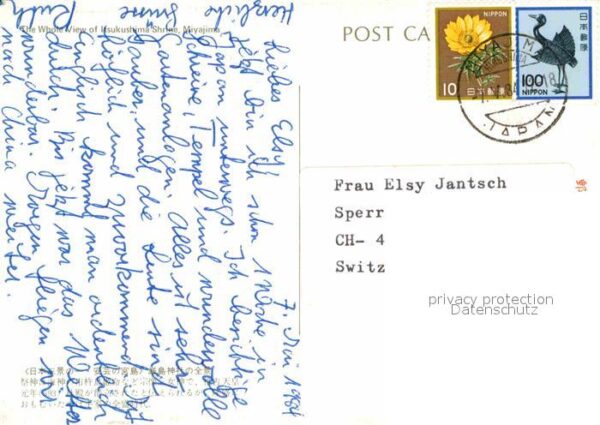 The Whole View of Itsukushima Shrine, Miyajima
POST CA
10 NIPPON
日本郵便
100 NIPPON
日本郵便
MIYAJIMA
JAPAN
7. Juni 1984
Liebes Elsy!
Jetzt bin ich schon 1 Woche in
Japan unterwegs. Ich besichtige
Schreine, Tempel und wundervolle
Gartenanlagen. Alles ist sehr
sauber, und die Leute sind
höflich und zuvorkommend. Mit
Englisch kommt man ordentlich
durch. Bis jetzt war das Wetter
wunderbar. Morgen fliegen wir
nach China weiter.
Herzliche Grüsse
Ruth
Frau Elsy Jantsch
Sperr
CH- 4
Switz
privacy protection
Datenschutz